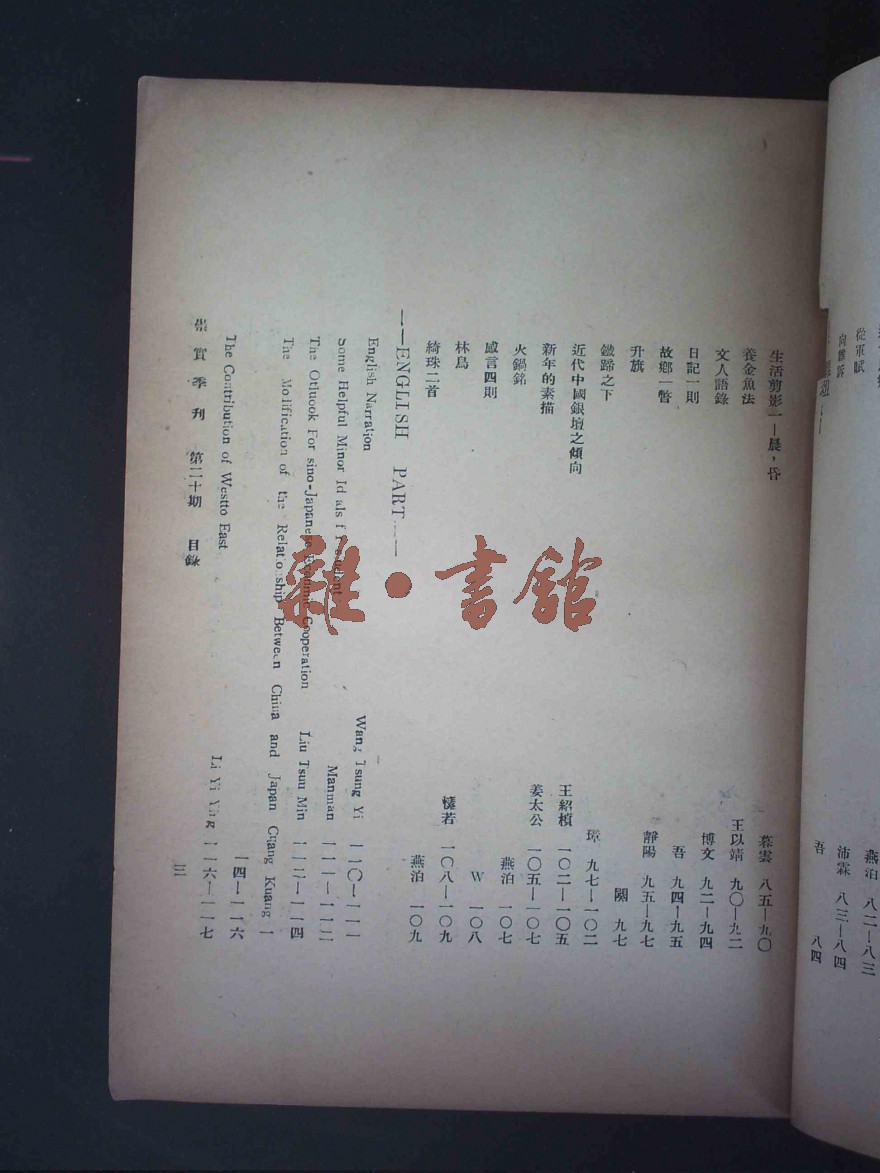 從軍賦 燕泊 八二—八三
向誰訴 沛霖 八三—八四
吾 八四
生活剪影—晨，昏 暮雲 八五—九〇
養金魚法 王以靖 九〇—九二
文人語錄 博文 九二—九四
日記一則 吾 九四—九五
故鄉一瞥 靜陽 九五—九七
升旗 闕 九七
鐵蹄之下 璋 九七—一〇二
近代中國銀壇之傾向 王紹楨 一〇二—一〇五
新年的素描 姜太公 一〇五—一〇七
火鍋銘 燕泊 一〇七
感言四則 W 一〇八
林鳥 懂若 一〇八—一〇九
綺珠二首 燕泊 一〇九
——ENGLISH PART——
English Narration Wang Tsung Yi 一一〇—一一一
Some Helpful Minor Id als f Manman 一一一—一一二
The Otluook For sino-Japanese Cooperation Liu Tsuu Min 一一二—一一四
The Molification of the Relationship Between China and Japan Cuang Kuang 一一四—一一六
The Contribution of Westto East Li Yi Ying 一一六—一一七
崇實季刊 第二十期 目錄 三
雜·書館